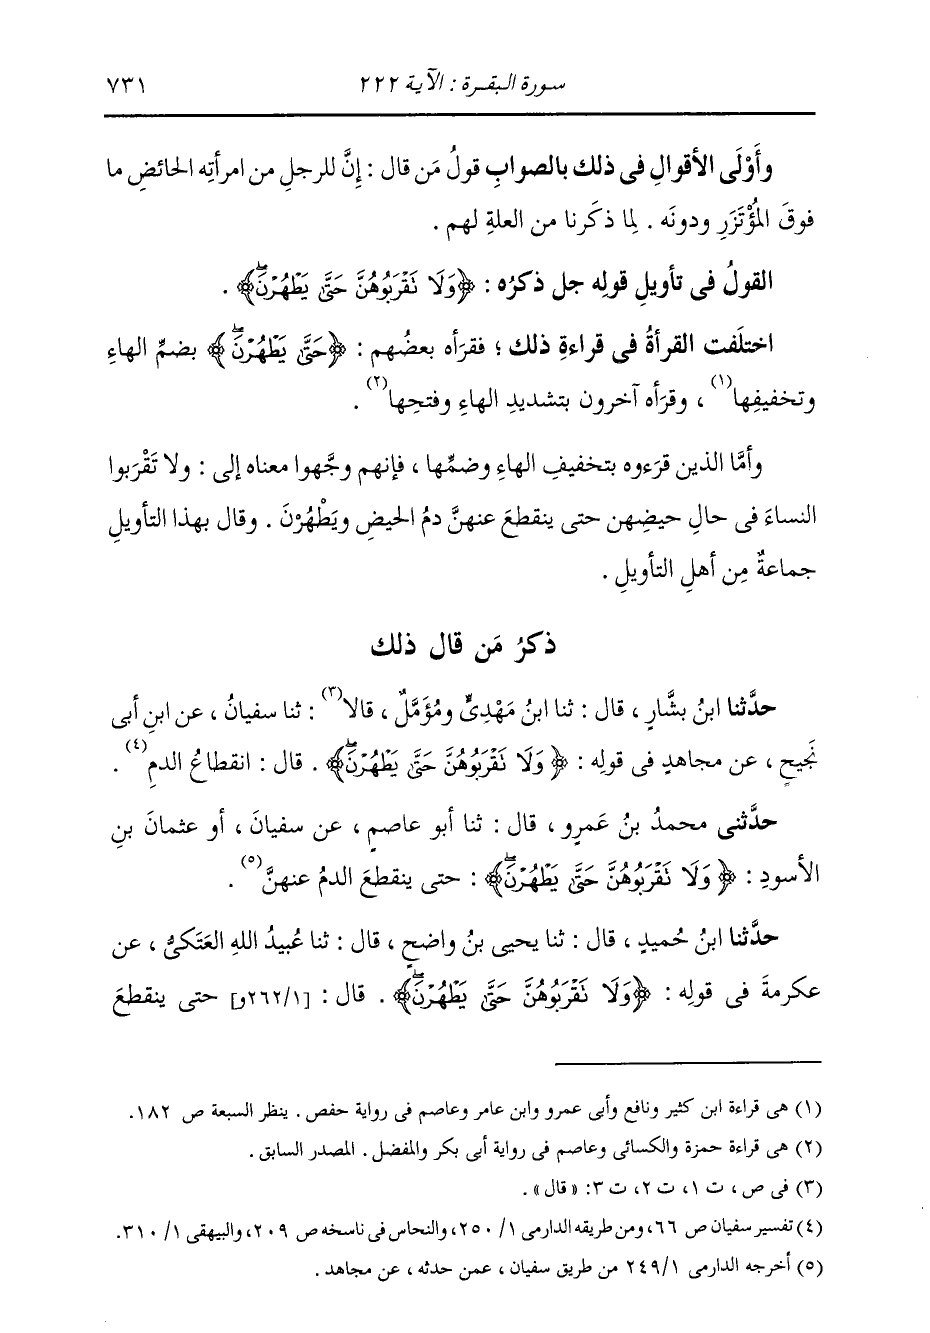 سورة البقرة : الآية ٢٢٢
٧٣١
وأَوْلَى الأقوالِ فى ذلك بالصوابِ قولُ مَن قال : إنَّ للرجلِ من امرأتِه الحائضِ ما
فوقَ المُؤْتَزَرِ ودونَه . لِما ذكَرنا من العلةِ لهم .
القولُ فى تأويلِ قولِه جل ذكرُه : ﴿وَلَا نَقْرَبُوهُنَّ حَتَّى يَطْهُرْنَۖ﴾ .
اختلَفت القرأةُ فى قراءةِ ذلك ؛ فقرَأه بعضُهم : ﴿حَتَّى يَطْهُرْنَۖ﴾ بضمِّ الهاءِ
وتخفيفِها(١) ، وقرَأه آخرون بتشديدِ الهاءِ وفتحِها(٢) .
وأمَّا الذين قرَءوه بتخفيفِ الهاءِ وضمِّها ، فإنهم وجَّهوا معناه إلى : ولا تَقْرَبوا
النساءَ فى حالِ حيضِهن حتى ينقطعَ عنهنَّ دمُ الحيضِ ويَطْهُرْنَ . وقال بهذا التأويلِ
جماعةٌ مِن أهلِ التأويلِ .
ذكرُ مَن قال ذلك
حدَّثنا ابنُ بشَّارٍ ، قال : ثنا ابنُ مَهْدِىٍّ ومُؤَمَّلٌ ، قالا(٣) : ثنا سفيانُ ، عن ابنِ أبى
نَجيحٍ ، عن مجاهدٍ فى قولِه : ﴿وَلَا نَقْرَبُوهُنَّ حَتَّى يَطْهُرْنَۖ﴾ . قال : انقطاعُ الدمِ(٤) .
حدَّثنى محمدُ بنُ عَمرٍو ، قال : ثنا أبو عاصمٍ ، عن سفيانَ ، أو عثمانَ بنِ
الأسودِ : ﴿وَلَا نَقْرَبُوهُنَّ حَتَّى يَطْهُرْنَۖ﴾ : حتى ينقطعَ الدمُ عنهنَّ(٥) .
حدَّثنا ابنُ حُميدٍ ، قال : ثنا يحيى بنُ واضحٍ ، قال : ثنا عُبيدُ اللهِ العَتَكىُّ ، عن
عكرمةَ فى قولِه : ﴿وَلَا نَقْرَبُوهُنَّ حَتَّى يَطْهُرْنَۖ﴾ . قال : [٢٦٢/١و] حتى ينقطعَ
(١) هى قراءة ابن كثير ونافع وأبى عمرو وابن عامر وعاصم فى رواية حفص . ينظر السبعة ص ١٨٢.
(٢) هى قراءة حمزة والكسائى وعاصم فى رواية أبى بكر والمفضل . المصدر السابق .
(٣) فى ص ، ت ١، ت ٢، ت ٣: « قال» .
(٤) تفسير سفيان ص ٦٦، ومن طريقه الدارمى ١/ ٢٥٠، والنحاس فى ناسخه ص ٢٠٩، والبيهقى ١/ ٣١٠.
(٥) أخرجه الدارمى ٢٤٩/١ من طريق سفيان ، عمن حدثه ، عن مجاهد .